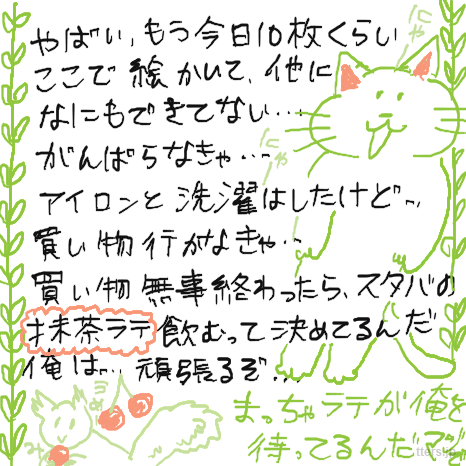 やばい,もう今日10枚くらい
ここで絵かいて、他に
なにもできてない…
がんばらなきゃ…
アイロンと洗濯はしたけど…
買い物行かなきゃ…
買い物無事終わったら、スタバの
抹茶ラテ飲むって決めてるんだ
俺は… 頑張るぞ…
まっちゃラテが俺を
待ってるんだマジで
にゃ
にゃ